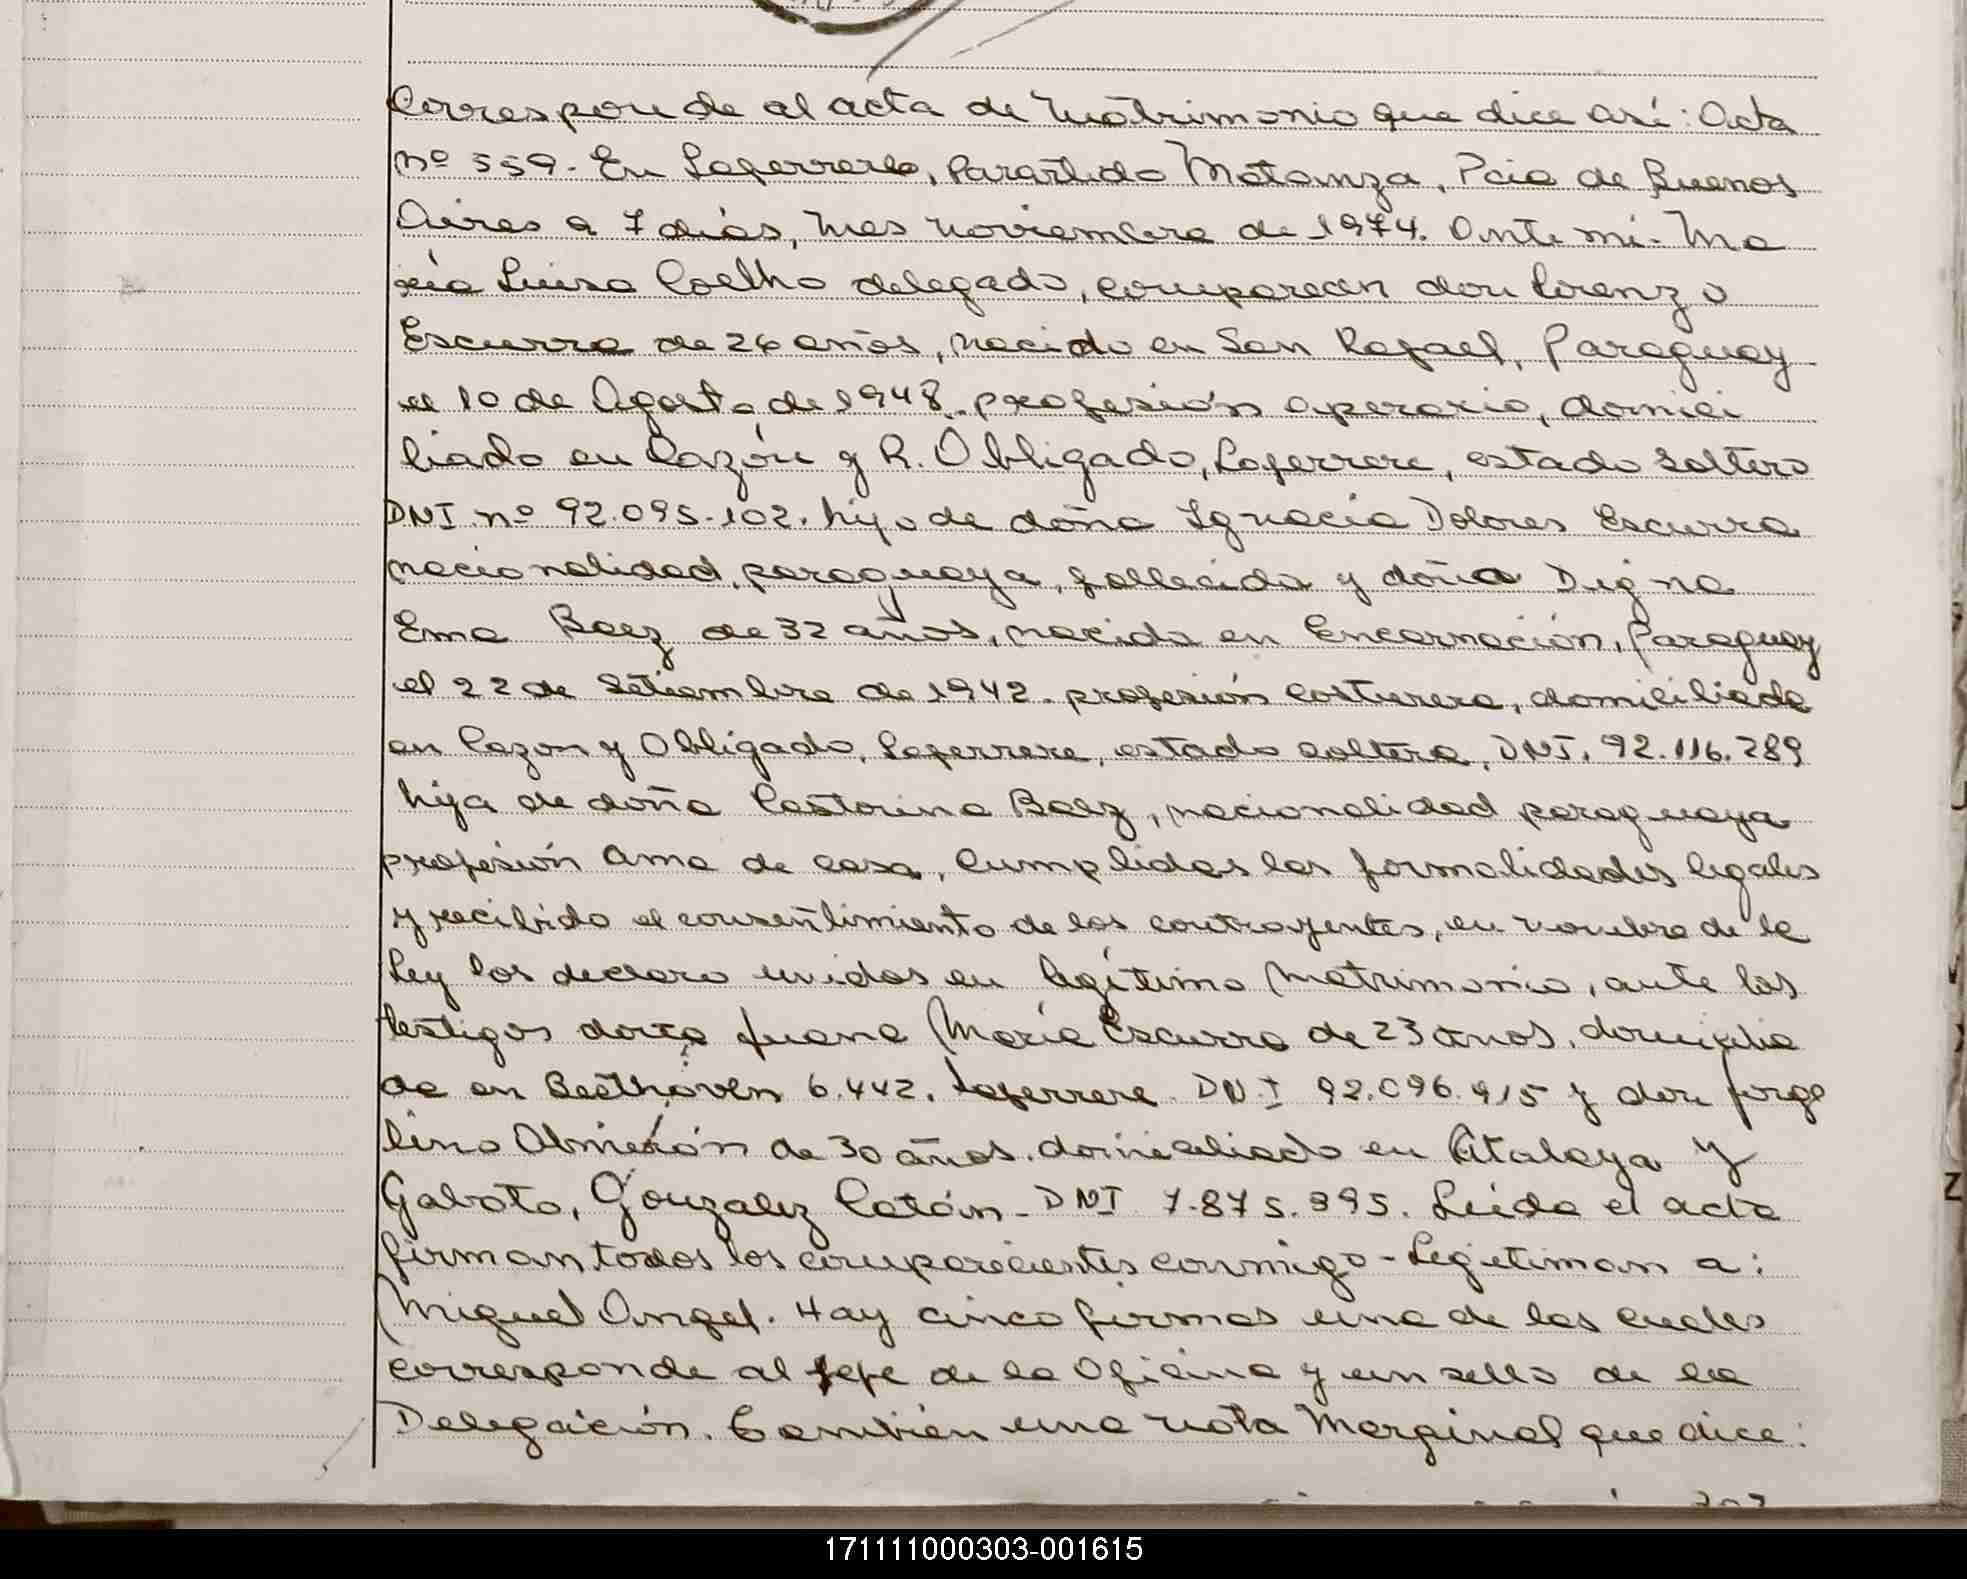 Corresponde al acta de Matrimonio que dice así: Acta
nº 559. En Laferrere, Paratido Matanza, Pcia de Buenos
Aires a 7 días, mes noviembre de 1974. Ante mi. Ma
ría Luisa Coelho delegado, comparecen don Lorenzo
Escurra de 26 años, nacido en San Rafael, Paraguay
el 10 de Agosto de 1948. profesión operario, domici
liado en Cazón y R. Obligado, Laferrere, estado soltero
DNI nº 92.095.102. hijo de doña Ignacia Dolores Escurra
nacionalidad paraguaya, fallecida y doña Digna
Ema Baez de 32 años, nacida en Encarnación, Paraguay
el 22 de Setiembre de 1942. profesión costurera, domiciliada
en Cazon y Obligado, Laferrere, estado soltera, DNI. 92.116.289
hija de doña Castorina Baez, nacionalidad paraguaya
profesión ama de casa, Cumplidas las formalidades legales
y recibido el consentimiento de los contrayentes, en nombre de la
Ley los declaro unidos en legítimo Matrimonio, ante los
testigos doña Juana María Escurra de 23 años, domicilia
da en Beethoven 6.442. Laferrere. DNI 92.096.915 y don Jorge
lino Almirón de 30 años. domiciliado en Atalaya y
Gaboto, González Catán - DNI 7.875.395. Leída el acta
firman todos los comparecientes conmigo - Legitiman a:
Miguel Angel. Hay cinco firmas una de las cuales
corresponde al jefe de la Oficina y un sello de la
Delegación. También una nota Marginal que dice:
171111000303-001615